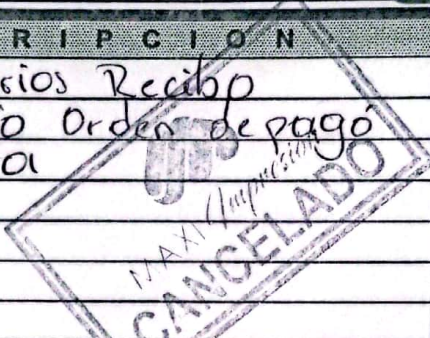 RIPCION
rios Recibo
o Orden de pagó
a
MAXI Impresión
CANCELADO